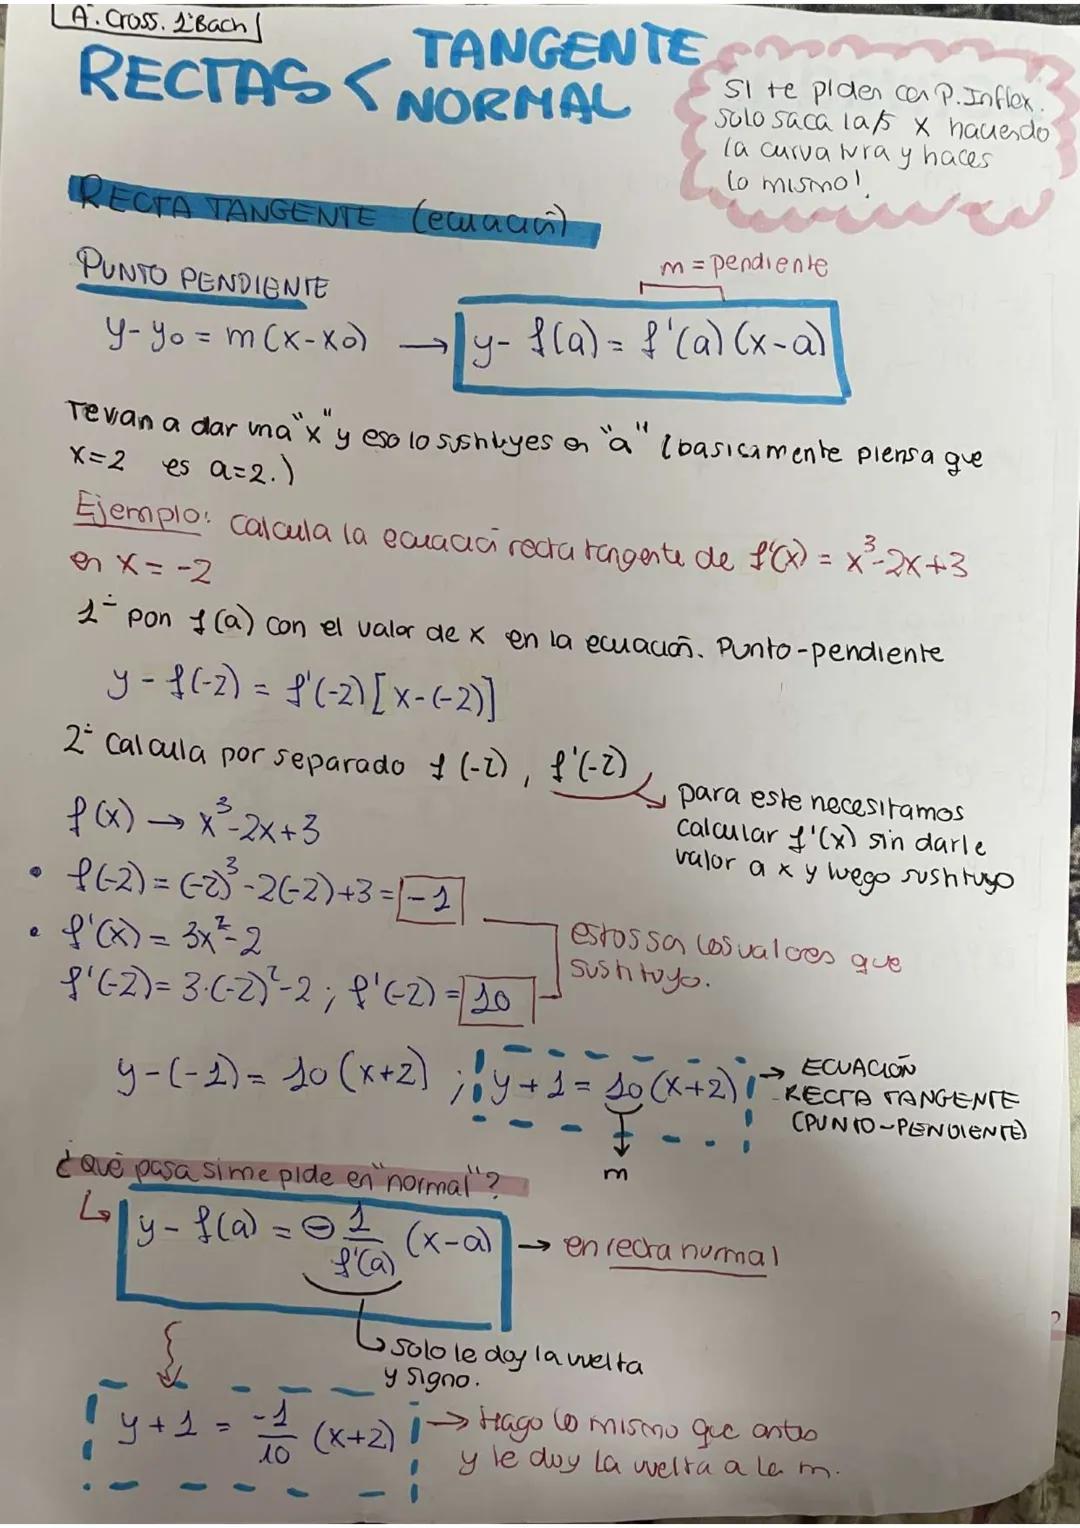 A. Cross. 1ºBach
RECTAS < TANGENTE
NORMAL
Si te piden con P. Inflex.
solo saca la/s x haciendo
la curvatura y haces
lo mismo!
RECTA TANGENTE (ecuación)
PUNTO PENDIENTE
m = pendiente
y - y0 = m(x - x0) → y - f(a) = f'(a) (x-a)
Te van a dar una "x" y eso lo sustituyes en "a" (basicamente piensa que
x=2 es a=2.)
Ejemplo: calcula la ecuación recta tangente de f'(x) = x³-2x+3
en x = -2
1º pon f(a) con el valor de x en la ecuación. Punto-pendiente
y - f(-2) = f'(-2) [x-(-2)]
2º Calcula por separado f(-2), f'(-2)
para este necesitamos
calcular f'(x) sin darle
valor a x y luego sustituyo
f(x) → x³-2x+3
• f(-2) = (-2)³-2(-2)+3 = -1
• f'(x) = 3x²-2
f'(-2) = 3·(-2)²-2 ; f'(-2) = 10
estos son los valores que
sustituyo.
y-(-1) = 10 (x+2) ; y+1 = 10(x+2) → ECUACIÓN
RECTA TANGENTE
(PUNTO-PENDIENTE)
m
¿Qué pasa si me pide en "normal"?
y - f(a) = - 1/f'(a) (x-a) → en recta normal
solo le doy la vuelta
y signo.
y+1 = -1/10 (x+2) → Hago lo mismo que antes
y le doy la vuelta a la m.